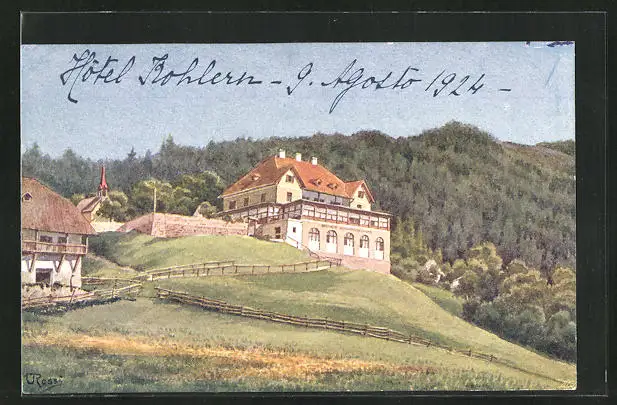 Hôtel Kohlern - 9. Agosto 1924 -
Rossi